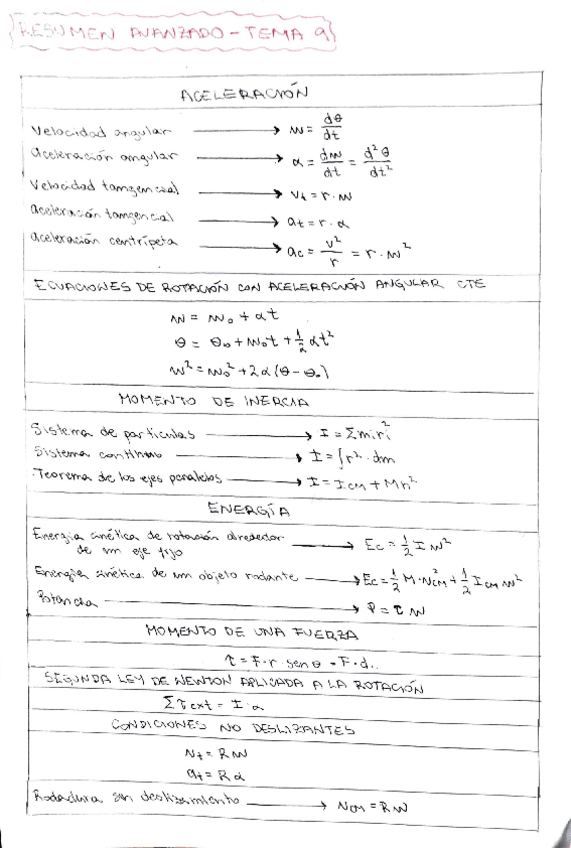 RESUMEN AVANZADO - TEMA 9
ACELERACIÓN
Velocidad angular → ω = dθ/dt
aceleración angular → α = dω/dt = d²θ/dt²
Velocidad tangencial → vt = r · ω
aceleración tangencial → at = r · α
aceleración centrípeta → ac = v²/r = r · ω²
ECUACIONES DE ROTACIÓN CON ACELERACIÓN ANGULAR CTE
ω = ω₀ + αt
θ = θ₀ + ω₀t + ½ αt²
ω² = ω₀² + 2α(θ - θ₀)
MOMENTO DE INERCIA
Sistema de partículas → I = Σmiri²
Sistema continuo → I = ∫r² · dm
Teorema de los ejes paralelos → I = ICM + Mh²
ENERGÍA
Energía cinética de rotación alrededor
de un eje fijo → Ec = ½ I ω²
Energía cinética de un objeto rodante → Ec = ½ M · vCM² + ½ ICM ω²
Potencia → P = τ ω
MOMENTO DE UNA FUERZA
τ = F · r · sen θ = F · d.
SEGUNDA LEY DE NEWTON APLICADA A LA ROTACIÓN
Στext = I · α
CONDICIONES NO DESLIZANTES
vt = Rω
at = Rα
Rodadura sin deslizamiento → vCM = Rω